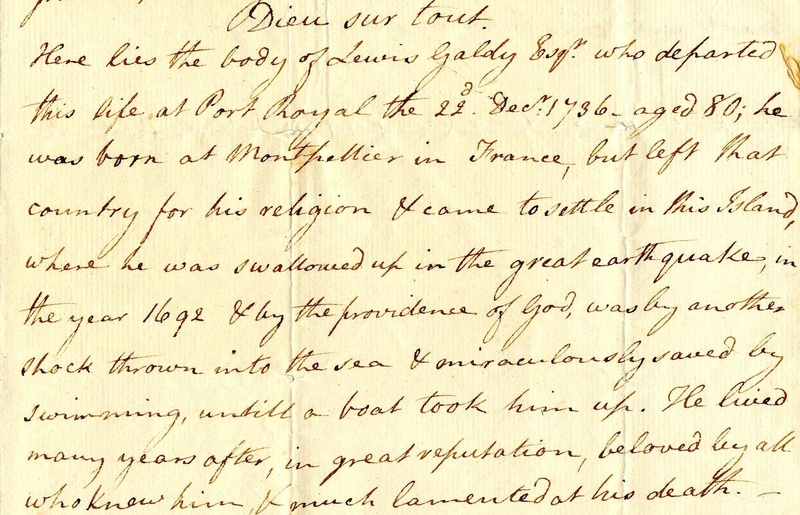 Dieu sur tout.
Here lies the body of Lewis Galdy Esqr. who departed
this life at Port Royal the 22d. Decr. 1736 - aged 80; he
was born at Montpellier in France, but left that
country for his religion & came to settle in this Island,
where he was swallowed up in the great earthquake, in
the year 1692 & by the providence of God, was by another
shock thrown into the sea & miraculously saved by
swimming, untill a boat took him up. He lived
many years after, in great reputation, beloved by all
who knew him, & much lamented at his death. -